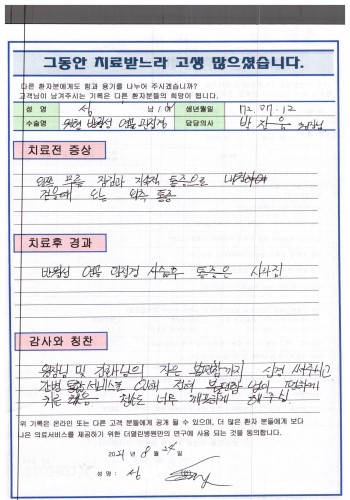 그동안 치료받느라 고생 많으셨습니다.
다른 환자분에게도 힘과 용기를 나누어 주시겠습니까?
고객님이 남겨주시는 기록은 다른 환자분들의 희망이 됩니다.
성 명 심 남 / 여 생년월일 72. 07. 12
수술명 연골 관절경 담당의사 박 원장님
치료전 증상
왼쪽 무릎 잠김과 지속적 통증으로
걷을때 또는 뒤쪽 통증
치료후 경과
반월성 연골 관절경 시술후 통증은 사라짐
감사와 칭찬
원장님 및 간호사님의 작은 불편함까지 신경 써주시고
간병 통합서비스로 인해 전혀 불편함 없이 편하게
치료 했음 청소도 너무 깨끗하게 해주심
위 기록은 온라인 또는 다른 고객 분들에게 공개 될 수 있으며, 더 많은 환자 분들에게 보다
나은 의료서비스를 제공하기 위한 더열린병원만의 연구에 사용 되는 것을 동의합니다.
2021 년 8 월 24 일
성 명 : 심